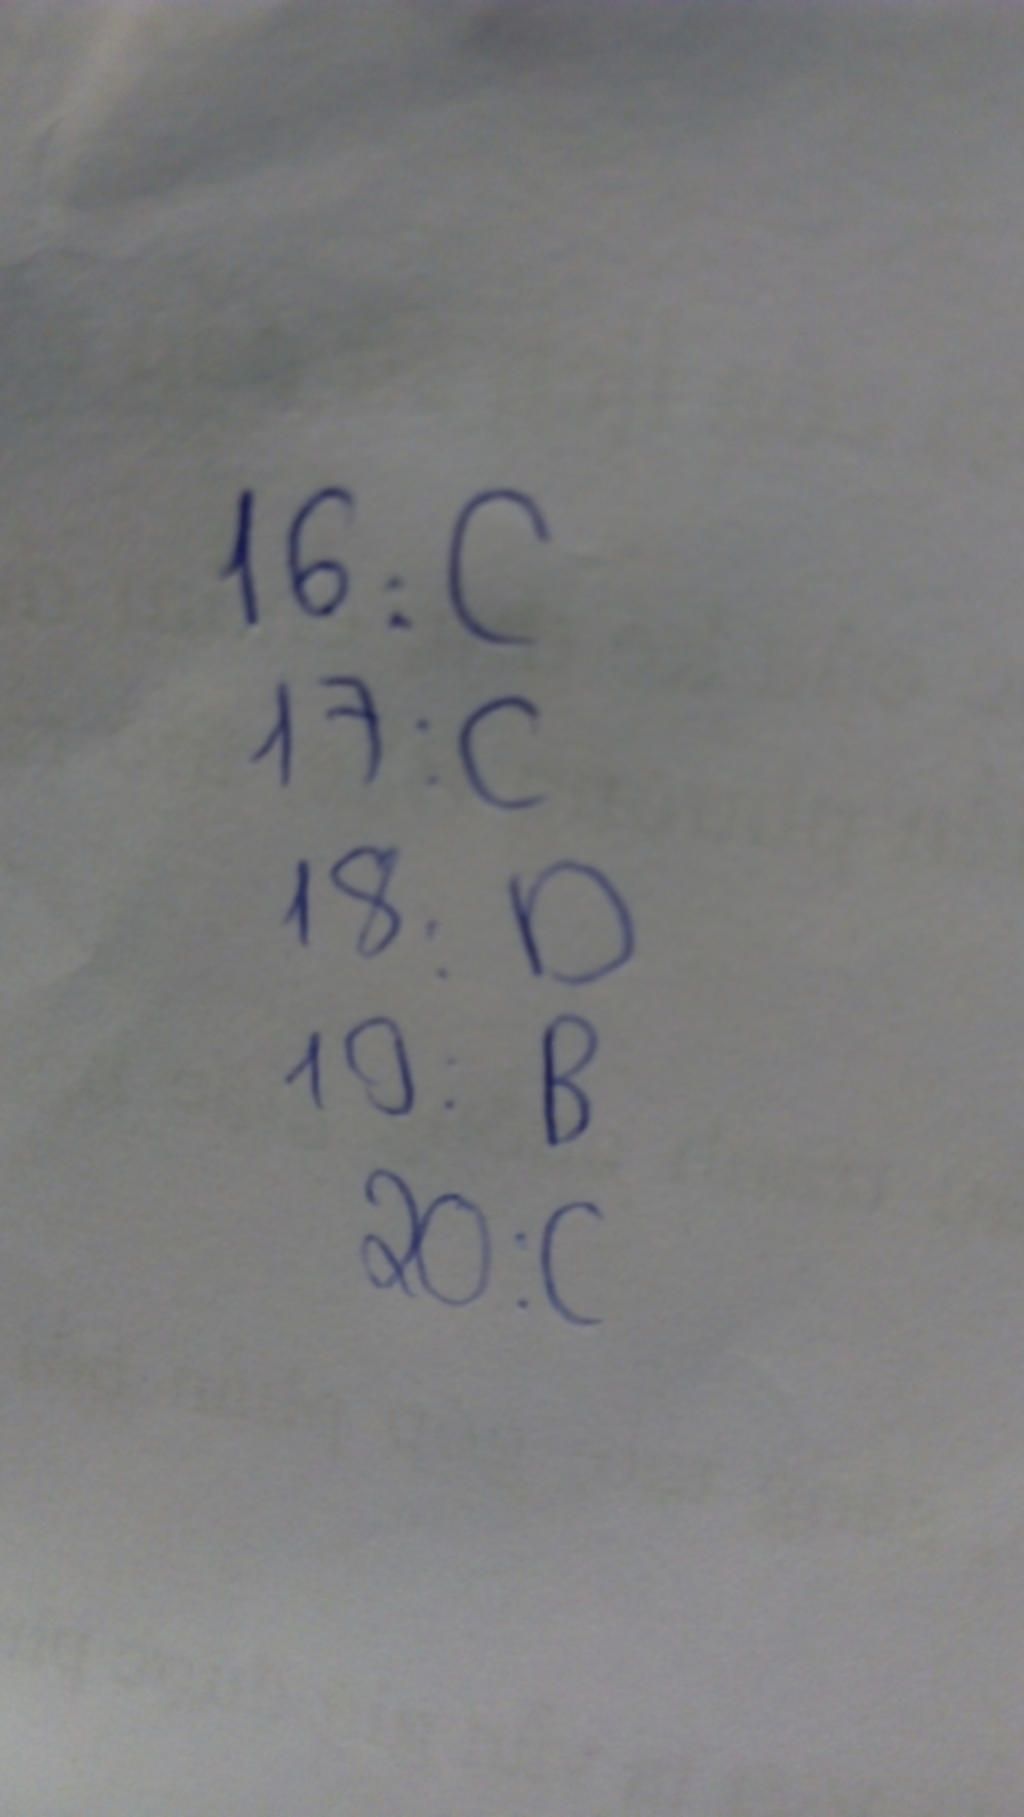 16: C
17: C
18: D
19: B
20: C